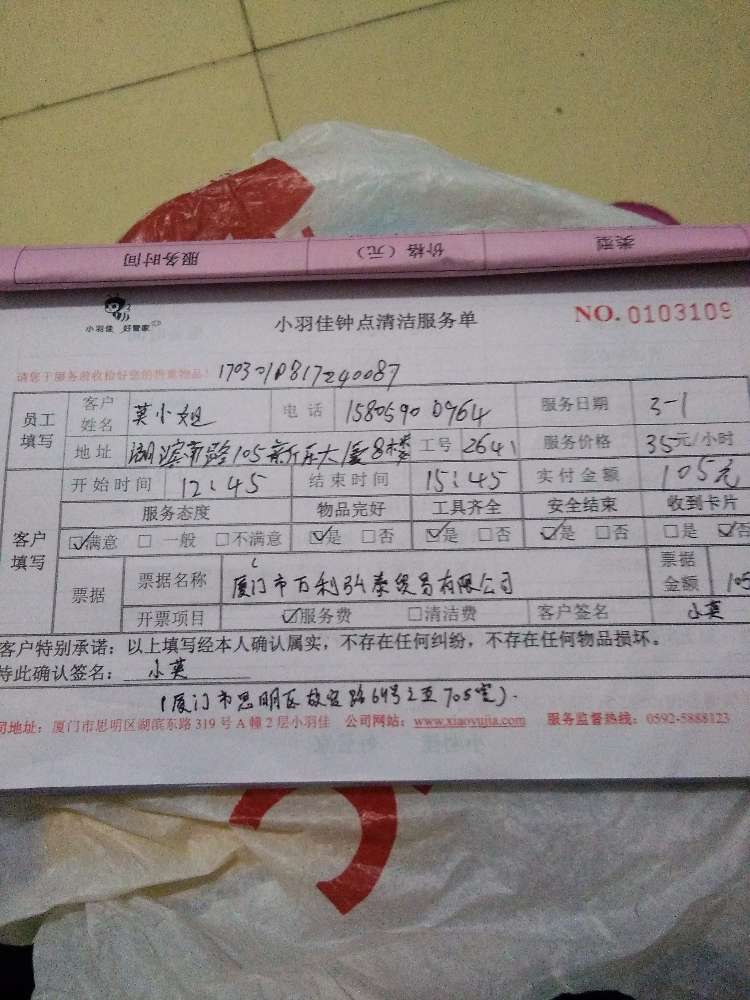 服务时间 价格（元） 类型
小羽佳 好管家
小羽佳钟点清洁服务单
NO. 0103109
请您于服务前收检好您的贵重物品！1703010817240087
员工填写 客户姓名 英小姐 电话 1580590 0964 服务日期 3-1
地址 湖滨南路105 大厦8楼 工号 2641 服务价格 35元/小时
客户填写 开始时间 12:45 结束时间 15:45 实付金额 105元
服务态度 物品完好 工具齐全 安全结束 收到卡片
☑满意 □一般 □不满意 ☑是 □否 ☑是 □否 ☑是 □否 □是 ☑否
票据 票据名称 厦门市百利弘泰贸易有限公司 票据金额 105
开票项目 ☑服务费 □清洁费 客户签名 小英
客户特别承诺：以上填写经本人确认属实，不存在任何纠纷，不存在任何物品损坏。
特此确认签名： 小英
(厦门市思明区故宫路64号之五705室).
司地址：厦门市思明区湖滨东路319号A幢2层小羽佳 公司网站：www.xiaoyujia.com 服务监督热线：0592-5888123